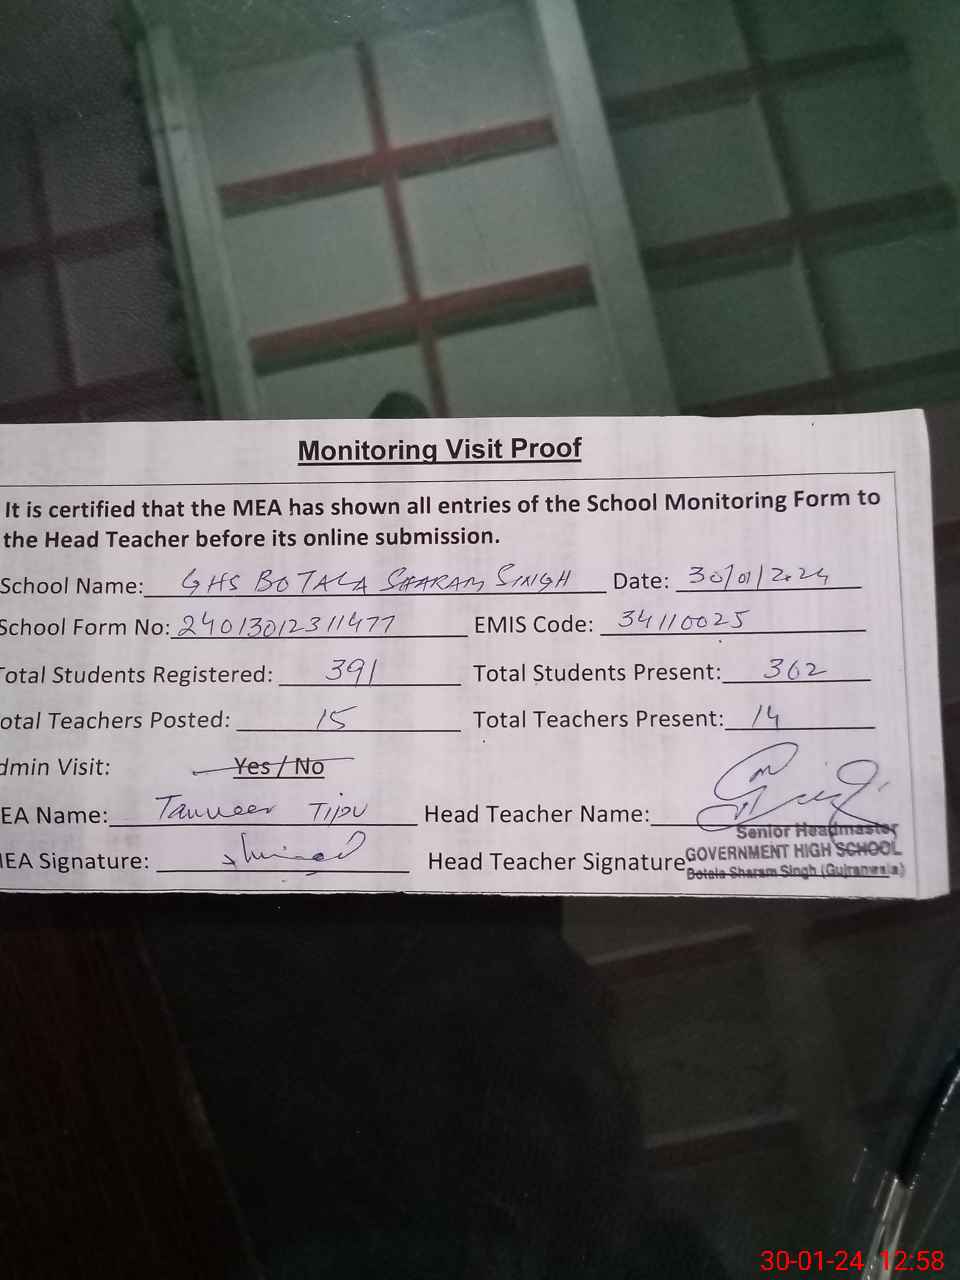 Monitoring Visit Proof
It is certified that the MEA has shown all entries of the School Monitoring Form to
the Head Teacher before its online submission.
School Name: GHS BOTALA SHARAM SINGH Date: 30/01/2024
School Form No: 24013012311477 EMIS Code: 34110025
otal Students Registered: 391 Total Students Present: 362
otal Teachers Posted: 15 Total Teachers Present: 14
dmin Visit: Yes / No
EA Name: Tanveer TIPU Head Teacher Name:
EA Signature: Head Teacher Signature
Senior Headmaster
GOVERNMENT HIGH SCHOOL
Botala Sharam Singh (Gujranwala)
30-01-24 12:58